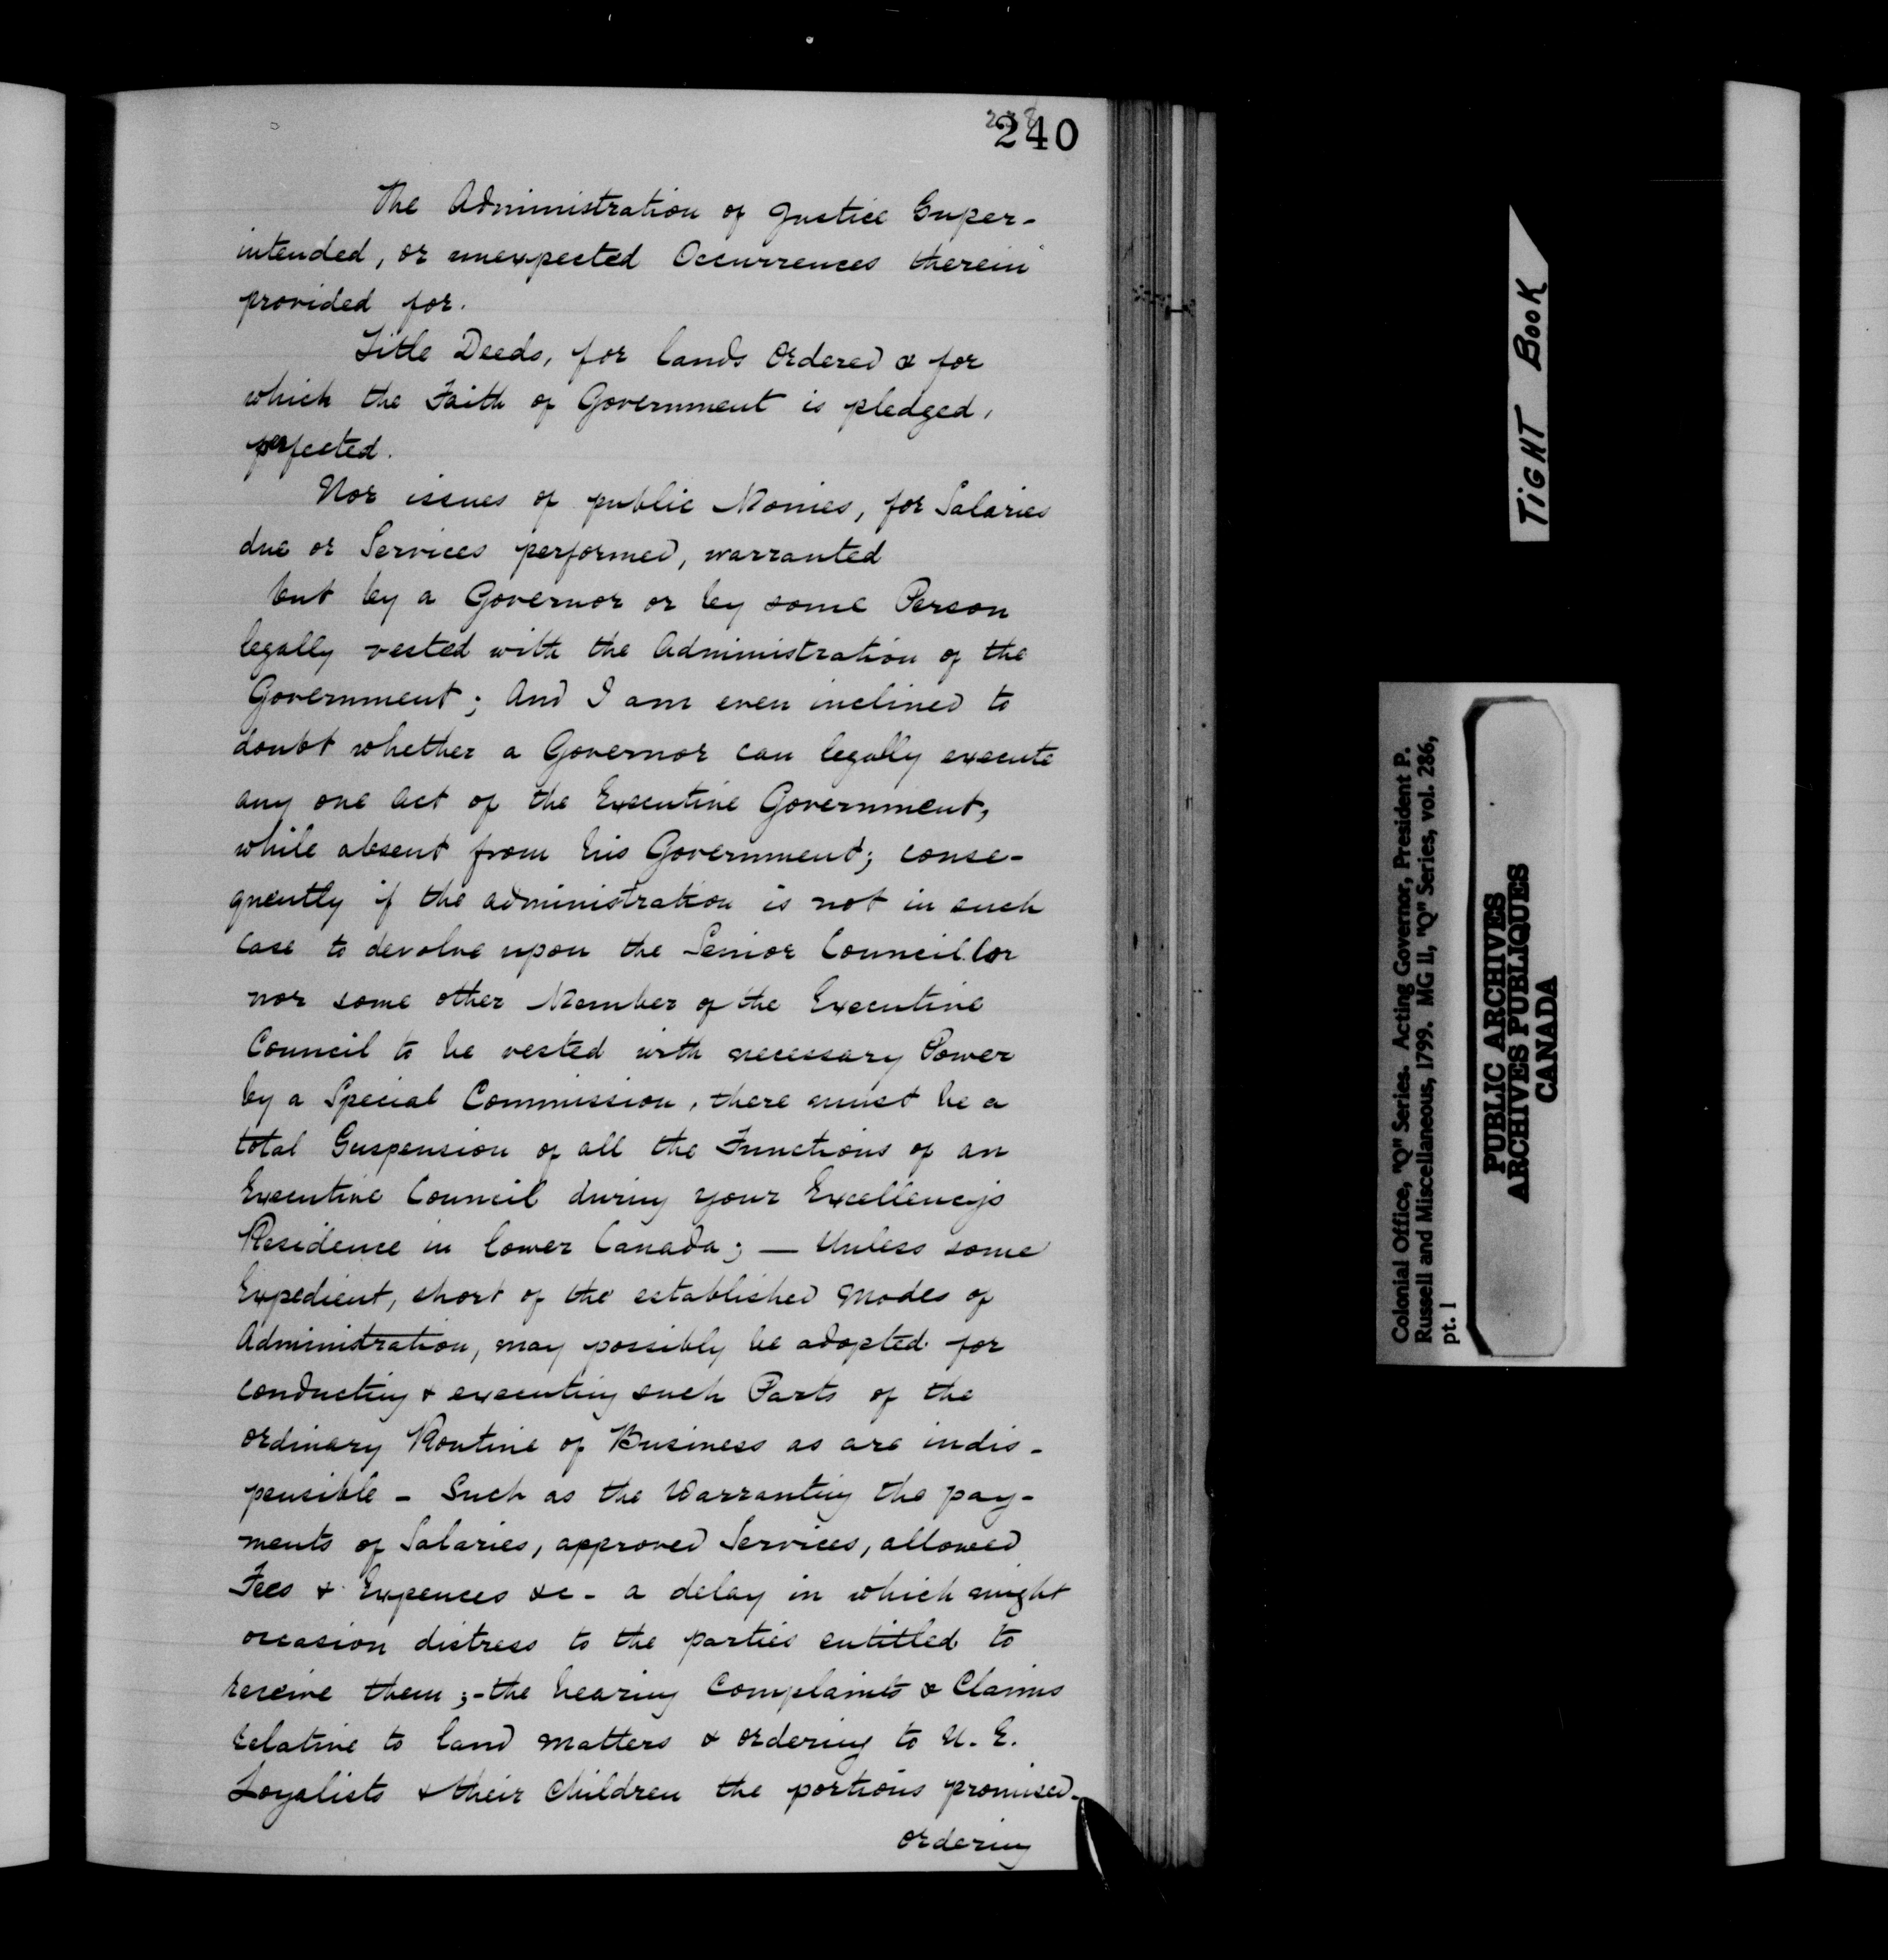 240
The Administration of Justice Super-
intended, or unexpected Occurrences therein
provided for.
Title Deeds, for lands Ordered & for
which the Faith of Government is pledged,
perfected.
Nor issues of public Monies, for Salaries
due or Services performed, warranted
but by a Governor or by some Person
legally vested with the Administration of the
Government; And I am even inclined to
doubt whether a Governor can legally execute
any one Act of the Executive Government,
while absent from his Government; conse-
quently if the administration is not in such
Case to devolve upon the Senior Councillor
nor some other Member of the Executive
Council to be vested with necessary Power
by a Special Commission, there must be a
total Suspension of all the Functions of an
Executive Council during your Excellency's
Residence in Lower Canada; — Unless some
Expedient, short of the established Modes of
Administration, may possibly be adopted for
conducting & executing such Parts of the
ordinary Routine of Business as are indis-
pensible - Such as the Warranting the pay-
ments of Salaries, approved Services, allowed
Fees & Expences &c - a delay in which might
occasion distress to the parties entitled to
receive them; - the hearing Complaints & Claims
relative to land matters & ordering to U. E.
Loyalists & their Children the portions promised -
ordering
TIGHT BOOK
Colonial Office, "Q" Series. Acting Governor, President P.
Russell and Miscellaneous, 1799. MG 11, "Q" Series, vol. 286,
pt. 1
PUBLIC ARCHIVES
ARCHIVES PUBLIQUES
CANADA